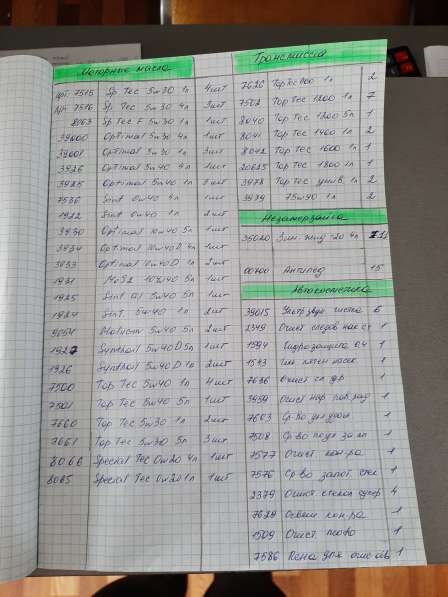 Моторные масла
арт. 7515 Sp Tec 5w30 1л 4шт
Арт. 7516 Sp. Tec 5w30 4л 3шт
8063 Sp Tec F 5w30 1л 1шт
39000 Optimal 5w30 4л 1шт
39001 Optimal 5w30 1л 3шт
3926 Optimal 5w40 4л 1шт
3925 Optimal 5w40 1л
7536 Sint 0w40 4л 1шт
1922 Sint 0w40 1л 2шт
3930 Optimal 10w40 5л 1шт
3934 Optimal 10w40 D 4л 1шт
3933 Optimal 10w40 D 1л 2шт
1931 MoS2 10w40 5л 1шт
1925 5w40 5л 1шт
1924 Sint. 5w40 1л 2шт
9054 Molygen 5w40 5л 2шт
1927 Synthoil 5w40 D 5л 1шт
1926 Synthoil 5w40 D 1л 2шт
7500 Top Tec 5w40 1л 4шт
7501 Top Tec 5w40 5л 1шт
7660 Top Tec 5w30 1л 2шт
7661 Top Tec 5w30 5л 3шт
8066 Special Tec 0w20 4л 1шт
8065 Special Tec 0w20 1л 1шт
Трансмиссия
7626 Top Tec 1100 1л 2
7502 Top Tec 1200 1л 7
8040 Top Tec 1200 5л 1
8041 Top Tec 1400 1л 2
8042 Top Tec 1600 1л 1
20625 Top Tec 1800 1л 1
3978 Top Tec унив. 1л 2
3979 75w90 1л 2
Незамерзайка
35020 Зим. жид -20 4л
00700 Антилед 15
Автокосметика
39015 6
2349 Очист следов нас 1
1594 Гидрозащита 1
1543 1
7636 Очист 1
3959 Очист нар 1
7603 Ср-во 1
7508 Ср-во 1
7577 Очист кон-ра 1
7576 Ср-во запот. стек 1
2379 Очист стекол супер 4
7629 Освеж кон-ра 1
1509 Очист. 1
7586 Пена для 1